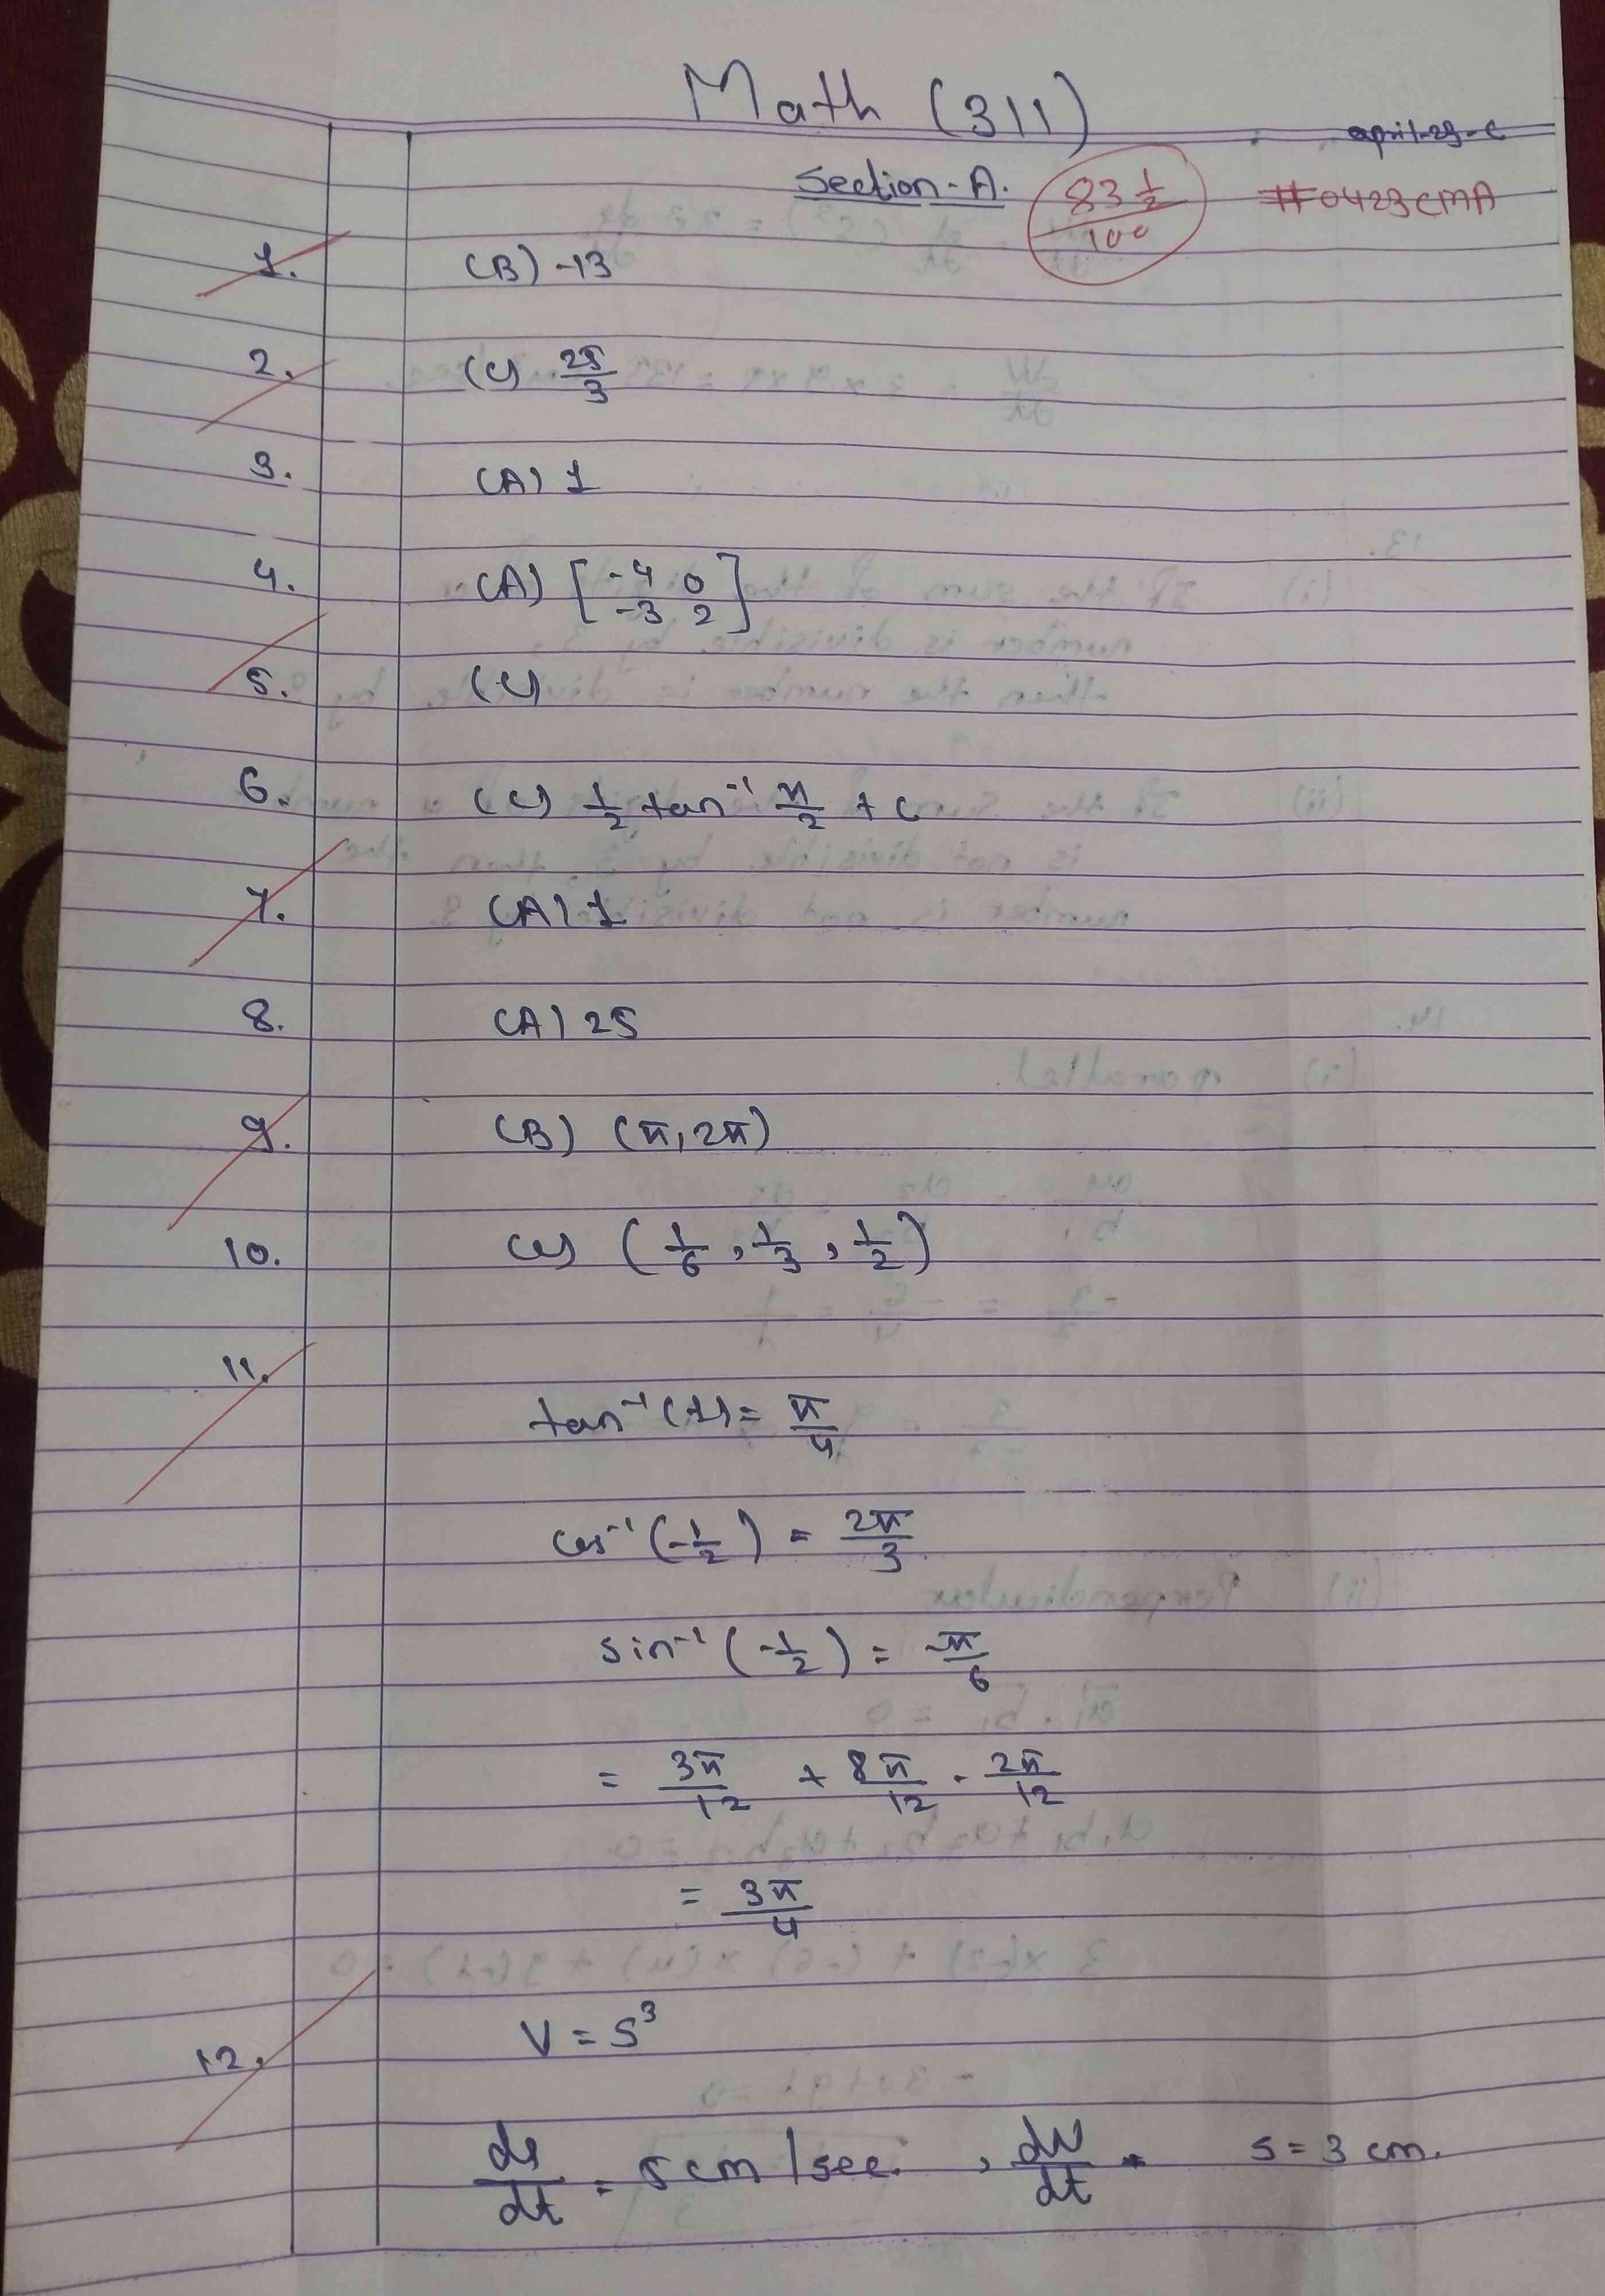 Math (311)
april-23-C
Section-A.
83 1/2 / 100
#0423CMA
1. (B) -13
2. (C) 25/3
3. (A) 1
4. (A) [-4 0
-3 2]
5. (C)
6. (C) 1/2 tan⁻¹ x/2 + C
7. (A) 1
8. (A) 25
9. (B) (π, 2π)
10. (C) (1/6, 1/3, 1/2)
11.
tan⁻¹(1) = π/4
cos⁻¹(-1/2) = 2π/3
sin⁻¹(-1/2) = -π/6
= 3π/12 + 8π/12 - 2π/12
= 3π/4
12. V = S³
ds/dt = 5 cm/sec. , dV/dt = S = 3 cm.